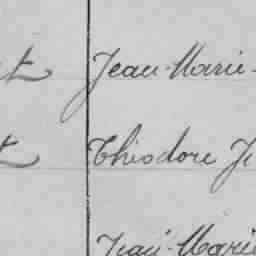 Jean-Marie-
Théodore
Jean-Marie